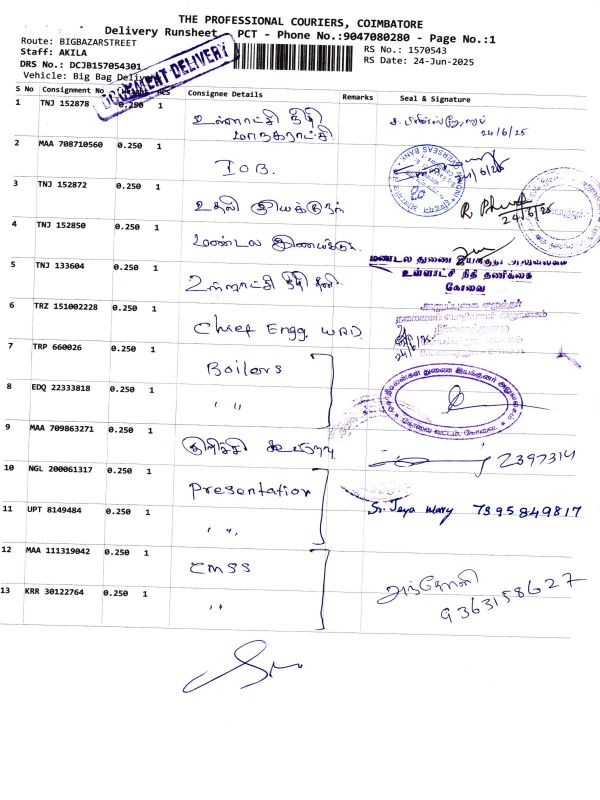 THE PROFESSIONAL COURIERS, COIMBATORE
Delivery Runsheet - PCT - Phone No.:9047080280 - Page No.:1
Route: BIGBAZARSTREET
Staff: AKILA
DRS No.: DCJB157054301
Vehicle: Big Bag Delivery
RS No.: 1570543
RS Date: 24-Jun-2025
DOCUMENT DELIVERY
S No Consignment No Weight PCS Consignee Details Remarks Seal & Signature
1 TNJ 152878 0.250 1 உள்ளாட்சி நிதி
மாநகராட்சி
24/6/25
2 MAA 708710560 0.250 1 IOB
OVERSEAS BANK
24/6/25
3 TNJ 152872 0.250 1 உதவி இயக்குநர்
24/6/25
4 TNJ 152850 0.250 1 மண்டல இணை
மண்டல துணை இயக்குநர் அலுவலகம்
உள்ளாட்சி நிதி தணிக்கை
கோவை
5 TNJ 133604 0.250 1 உள்ளாட்சி நிதி
6 TRZ 151002228 0.250 1 Chief Engg. WRD.
24/6/25
7 TRP 660026 0.250 1 Boilers
துணை இயக்குநர் அலுவலகம்
கோவை
8 EDQ 22333818 0.250 1 " "
9 MAA 709863271 0.250 1 குறிஞ்சி
2397314
10 NGL 200061317 0.250 1 Presentation
11 UPT 8149484 0.250 1 " "
Sr. Jeya Mary 7395849817
12 MAA 111319042 0.250 1 CMSS
13 KRR 30122764 0.250 1 " "
அந்தோணி
9363158627